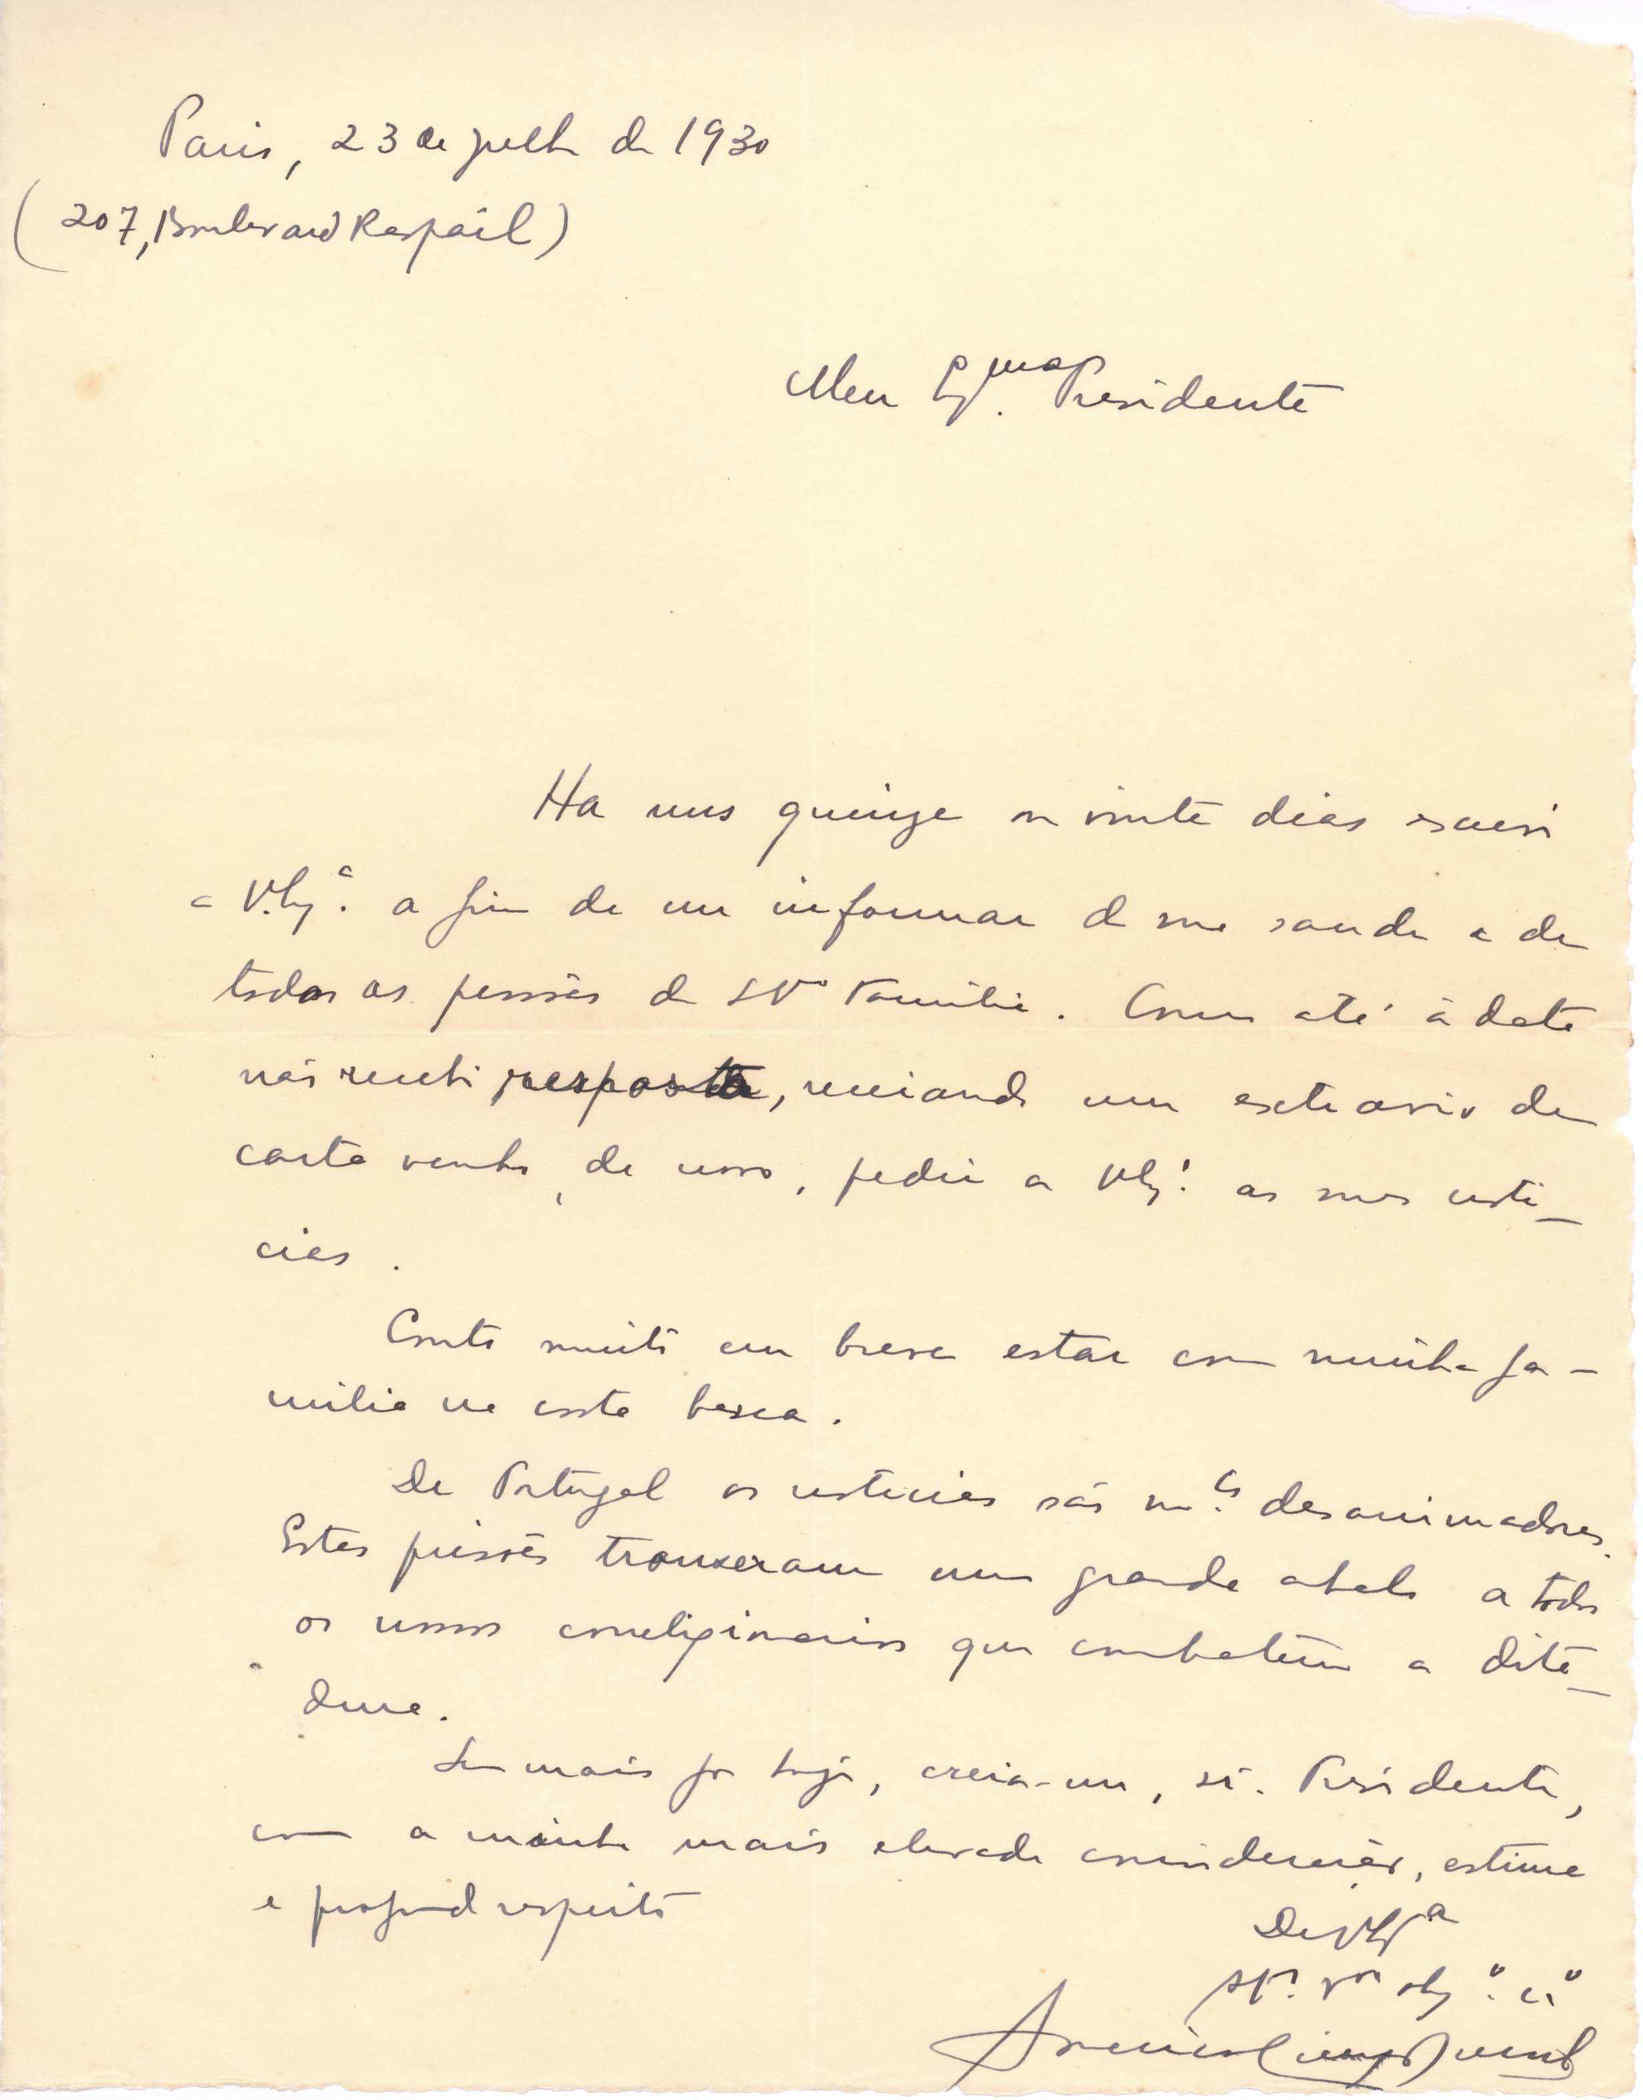 Paris, 23 de julho de 1930
(207, Boulevard Raspail)
Meu Exmo. Presidente
Ha uns quinze ou vinte dias escrevi
a V. Exª. a fim de me informar de sua saude e de
todas as pessôas de S. V. Familia. Como até á data
não recebi resposta, receiando um extravio da
carta venho, de novo, pedir a V. Exª. as suas noti-
cias.
Conto muito em breve estar com minha fa-
milia na costa basca.
De Portugal as noticias são m.tº desanimadoras.
Estas prisões trouxeram um grande abalo a todos
os nossos correligionarios que combatem a dita-
dura.
Sem mais por hoje, creia-me, sr. Presidente,
com a minha mais elevada consideração, estima
e profundo respeito
De V. Exª